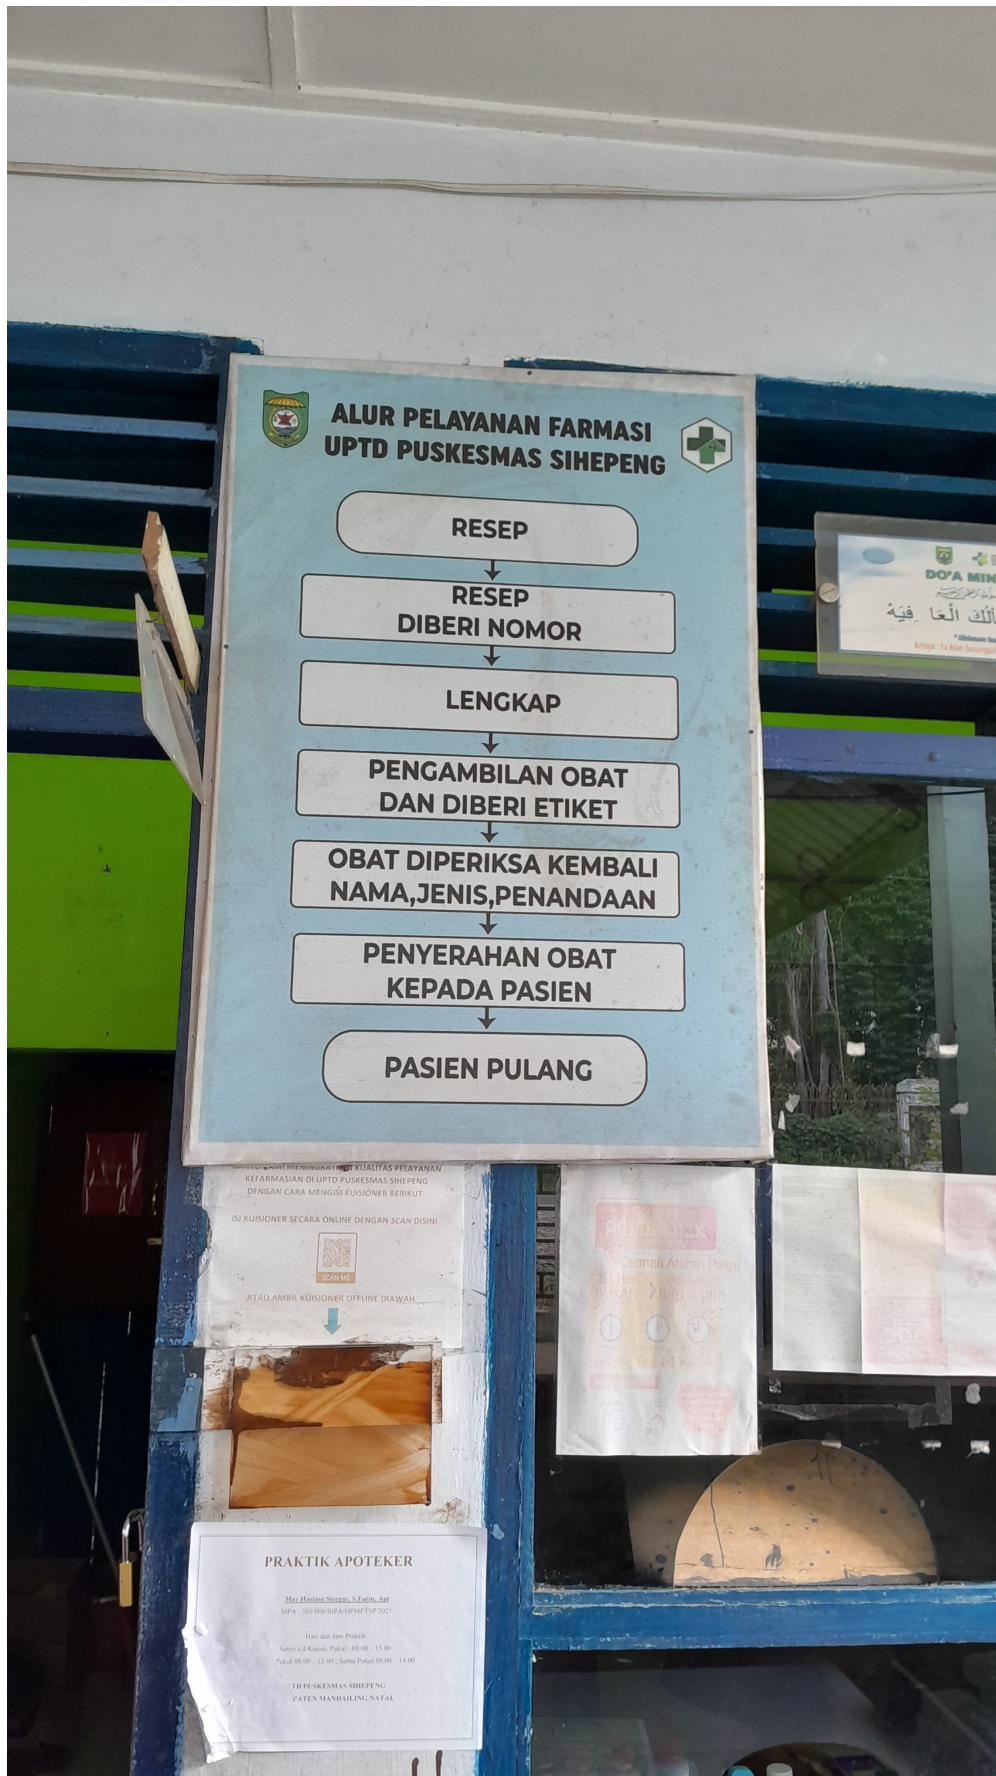 ALUR PELAYANAN FARMASI
UPTD PUSKESMAS SIHEPENG
RESEP
RESEP
DIBERI NOMOR
LENGKAP
PENGAMBILAN OBAT
DAN DIBERI ETIKET
OBAT DIPERIKSA KEMBALI
NAMA,JENIS,PENANDAAN
PENYERAHAN OBAT
KEPADA PASIEN
PASIEN PULANG
DO'A MIN
KUALITAS PELAYANAN
KEFARMASIAN DI UPTD PUSKESMAS SIHEPENG
DENGAN CARA MENGISI KUISIONER BERIKUT:
ISI KUISIONER SECARA ONLINE DENGAN SCAN DISINI
SCAN ME
ATAU AMBIL KUISIONER OFFLINE DIAWAH
PRAKTIK APOTEKER
May Hariani Siregar, S.Farm, Apt
Hari dan Jam Praktik
Senin s/d Kamis, Pukul : 08.00 – 15.00
Pukul 08.00 – 12.00 ; Sabtu Pukul 08.00 – 14.00
TD PUSKESMAS SIHEPENG
PATEN MANDAILING NATAL